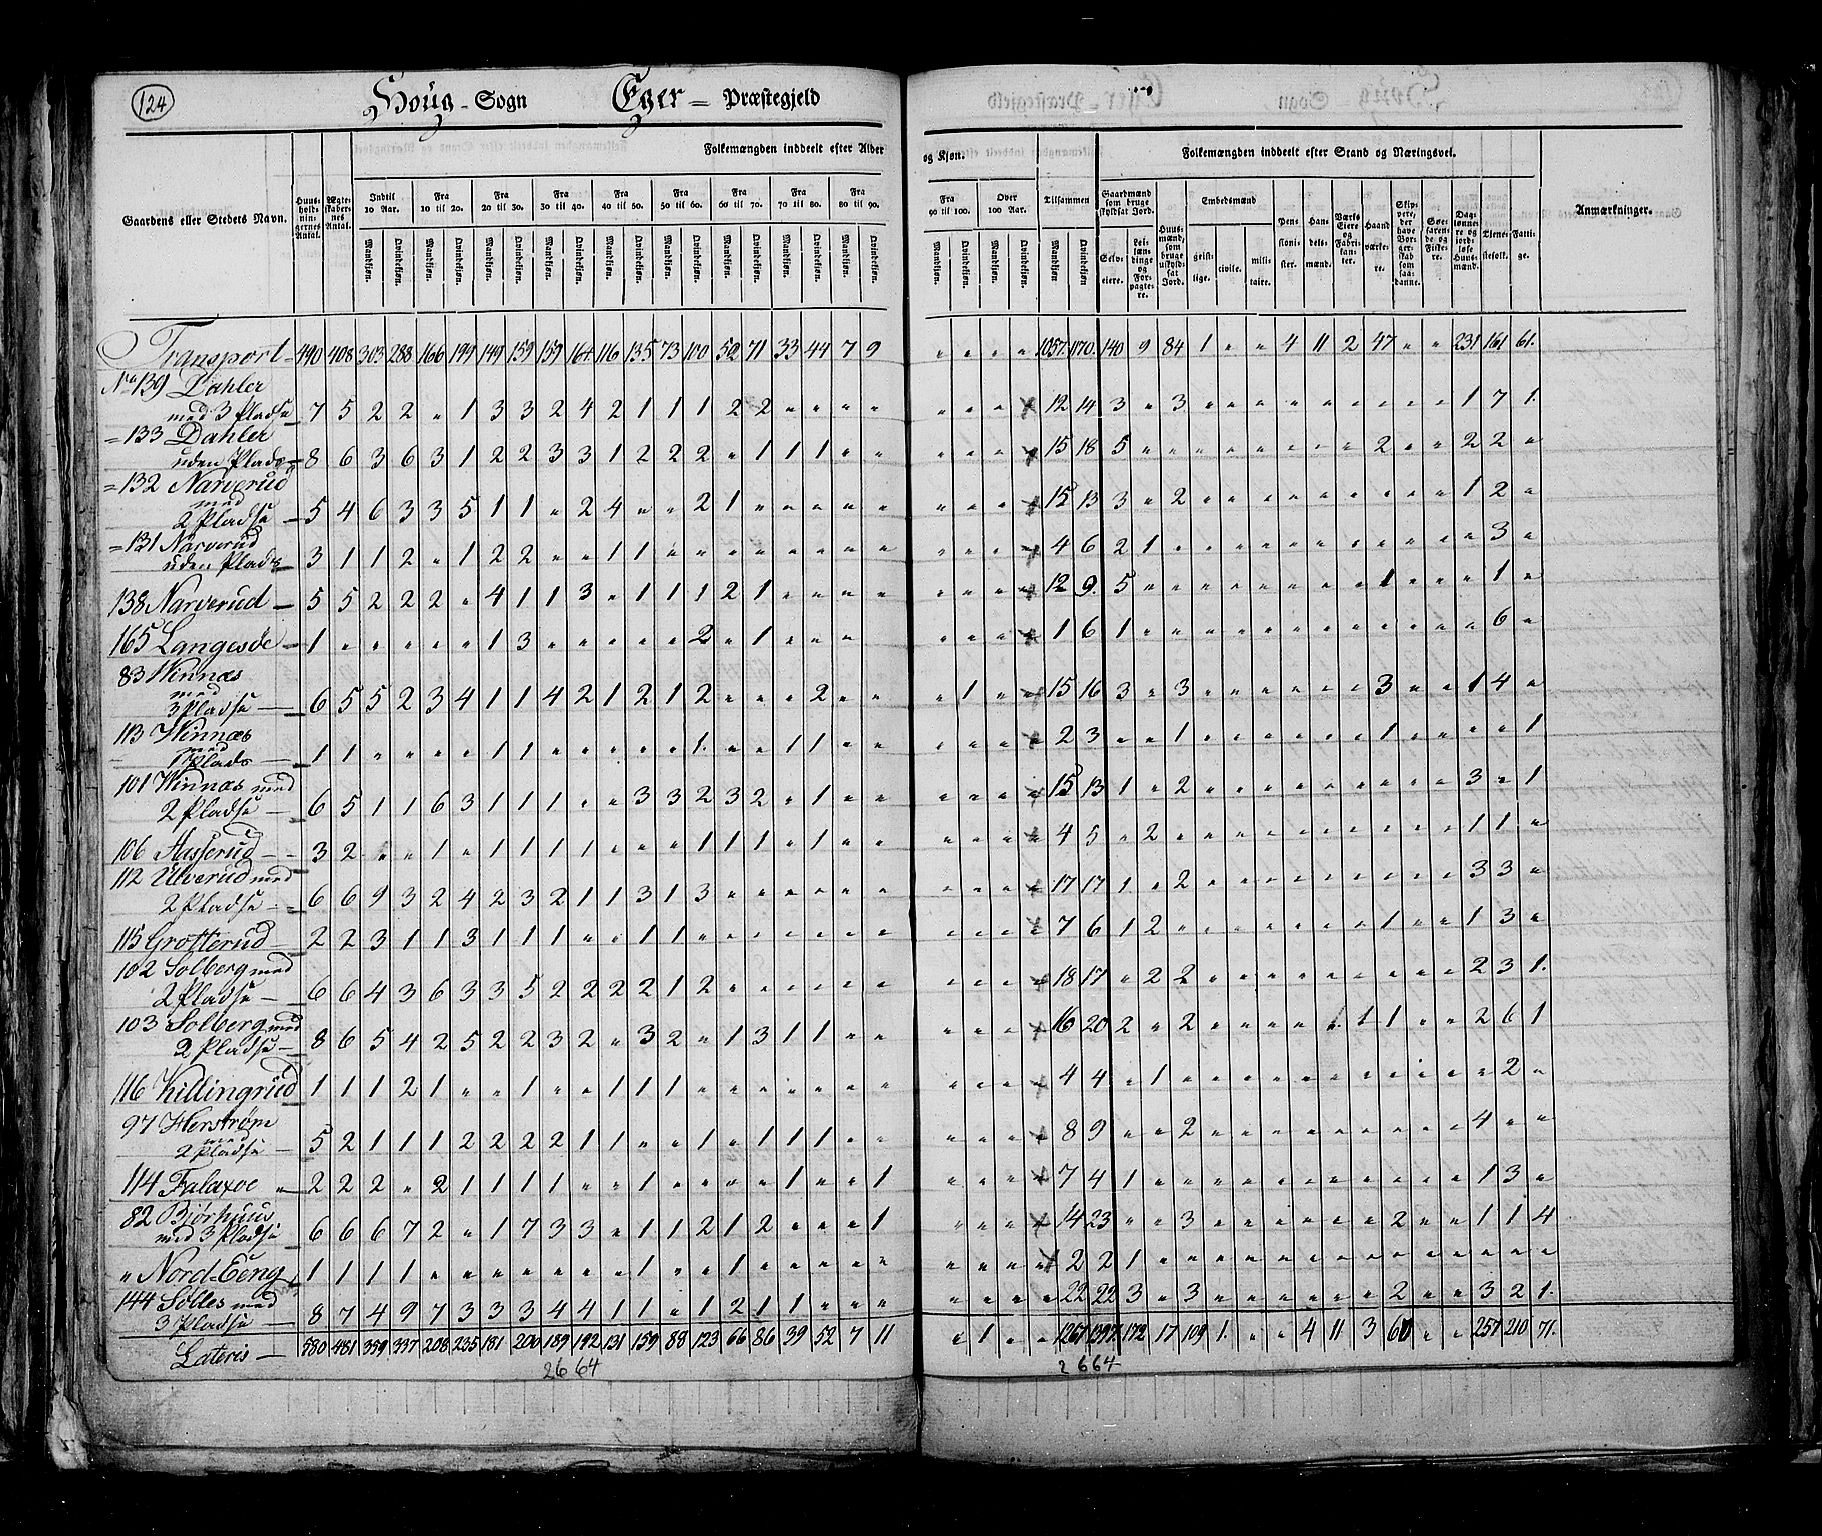 124
Houg - Sogn Eger = Præstegjeld
Folkemængden inddeelt efter Alder og Kjøn. Folkemængden inddeelt efter Stand og Næringsvei.
Gaardens eller Stedets Navn. Huusholdningernes Antal. Ægteskabernes Antal. Indtil 10 Aar. Fra 10 til 20. Fra 20 til 30. Fra 30 til 40. Fra 40 til 50. Fra 50 til 60. Fra 60 til 70. Fra 70 til 80. Fra 80 til 90. Fra 90 til 100. Over 100 Aar. Tilsammen Gaardmænd som bruge skyldsat Jord. Huusmænd, som bruge uskyldsat Jord. Embedsmænd Pensionister. Handelsmænd. Værks Eiere og Fabrikanter. Haandværkere. Skippere, der have Borgerskab som saadanne. Søefarende og Fiskere. Daglønnere og jordløse Huusmænd. Tienestefolk. Fattige. Anmærkninger.
Mandkjøn. Qvindekjøn. Mandkjøn. Qvindekjøn. Mandkjøn. Qvindekjøn. Mandkjøn. Qvindekjøn. Mandkjøn. Qvindekjøn. Mandkjøn. Qvindekjøn. Mandkjøn. Qvindekjøn. Mandkjøn. Qvindekjøn. Mandkjøn. Qvindekjøn. Mandkjøn. Qvindekjøn. Mandkjøn. Qvindekjøn. Mandkjøn. Qvindekjøn. Selveiere. Leilændinge og Forpagtere. geistlige. civile. militaire.
Transport 490 408 303 288 166 199 149 159 159 164 116 135 73 100 50 71 33 44 7 9 " " " " 1057. 1170. 140 9 84 1 " " 4 11 2 47 " " 231 161 61.
No 139 Dahler
med 3 Pladse 7 5 2 2 " 1 3 3 2 4 2 1 1 1 2 2 " " " " " " " 12 14 3 " 3 " " " " " " " " " 1 7 1.
= 133 Dahler
uden Plads 8 6 3 6 3 1 2 2 3 3 1 2 2 2 " 1 1 1 " " " " " 15 18 5 " " " " " " " " 2 " " 2 2 "
= 132 Narverud
med
2 Pladse 5 4 6 3 3 5 1 1 " 2 4 " " 2 1 " " " " " " " " 15 13 3 " 2 " " " " " " " " " 1 2 "
= 131 Narverud
uden Plads 3 1 1 2 " 1 2 2 " " 1 1 " " " " " " " " " " " 4 6 2 1 " " " " " " " " " " " 3 "
138 Narverud 5 5 2 2 2 " 4 1 1 3 " 1 1 1 2 1 " " " " " " " 12 9. 5 " " " " " " " " 1 " " " 1 "
165 Langesde 1 " " " " " 1 3 " " " " " 2 " 1 " " " " " " " 1 6 1 " " " " " " " " " " " " 6 "
83 Winnæs
med
3 Pladse 6 5 5 2 3 4 1 1 4 2 1 2 1 2 " " " 2 " " " 1 " " 15 16 3 " 3 " " " " " " 3 " " 1 4 "
113 Winnæs
med
1 Plads 1 1 " " " " 1 1 " " " " " 1. " " 1 1 " " " " " " 2 3 " " 1 " " " " " " 1 " " " " 1
101 Winnæs med
2 Pladse 6 5 1 1 6 3 1 1 1 " " 3 3 2 3 2 " 1 " " " " " " 15 13 1 " 2 " " " " " " " " " 3 " 1
106 Aasserud 3 2 " " 1 " 1 1 1 1 " " " 1 1 1 " 1 " " " " " " 4 5 " 2 " " " " " " " " " " 1 1 "
112 Ulverud med
2 Pladse 6 6 9 3 2 4 2 3 2 1 1 3 1 3 " " " " " " " " " " 17 17 1. " 2 " " " " " " " " " 3 3 "
115 Grotterud 2 2 3 1 1 3 1 1 1 " " 1 1 " " " " " " " " " " " 7 6 1 2 " " " " " " " 1 " " 1 3 "
102 Solberg med
2 Pladse 6 6 4 3 6 3 3 5 2 2 2 2 1 2 " " " " " " " " " " 18 17 " 2 2 " " " " " " " " " 2 3 1.
103 Solberg med
2 Pladse 8 6 5 4 2 5 2 2 3 2 " 3 2 " 1 3 1 1 " " " " " " 16 20 2 " 2 " " " " 1 1 " " 2 6 1
116 Killingrud 1 1 1 2 1 " " 1 " " 1 1 1 " " " " " " " " " " " 4 4 " 1 " " " " " " " " " " " 2 "
97 Herstrøm
med
2 Pladse 5 2 1 1 1 2 2 2 2 1 1 " " 1 " 1 1 1 " " " " " " 8 9 " " 2 " " " " " " " " " 4 " "
114 Falaxoe 2 2 2 " 2 1 1 1 1 " " 1 " " " " 1 " " 1 " " " " 7 4 1 " " " " " " " " " " " 1 3 "
82 Bjørhuus
med 3 Pladse 6 6 6 7 2 " 1 7 3 3 " 1 1 2 1 2 " " " 1 " " " " 14 23 " " 3 " " " " " " 2 " " 1 1 4
" Nord-Eeng 1 1 1 1 " " " " " " " 1 " " 1 " " " " " " " " " 2 2 1 " " " " " " " " " " " " " "
144 Solles med
3 Pladse 8 7 4 9 7 3 3 3 4 4 1 1 " 1 2 1 1 " " " " " " " 22 22 3 " 3 " " " " " " 2 " " 3 2 1.
Lateris 580 481 359 337 208 235 181 200 189 192 131 159 88 123 66 86 39 52 7 11 " 1 " " 1267 1397. 172 17 109 1. " " 4 11 3 60 " " 257 210 71.
2664 2664